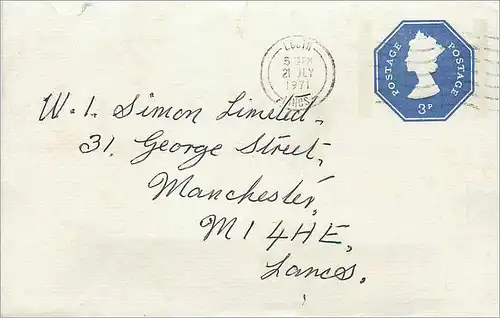 LOUTH
5 15 PM
21 JLY
1971
LINCS
POSTAGE POSTAGE
3P
W. I. Simon Limited.
31. George Street,
Manchester,
M1 4HE,
Lancs.